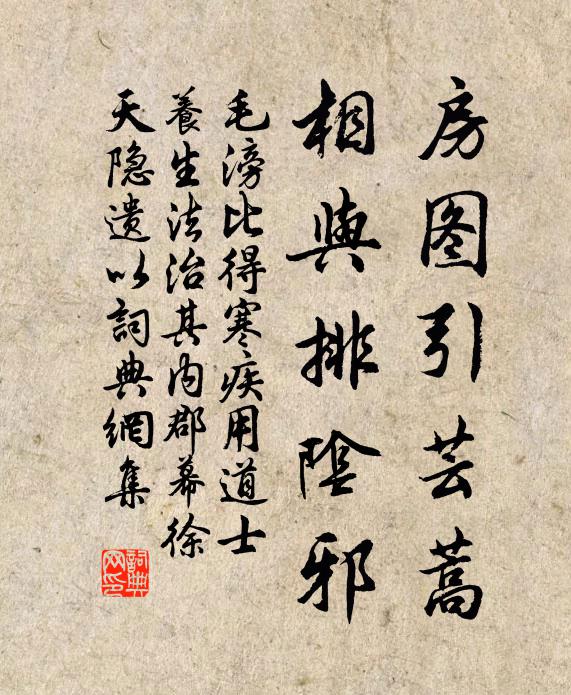 房图引芸蒿
相與排陰邪
毛滂比得寒疾用道士
養生法治其内郡幕徐
天隐遗以詞典網集
詞典
网印